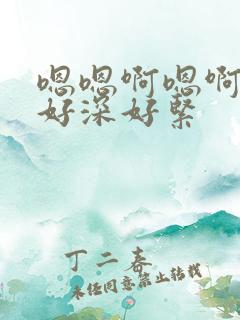 嗯嗯啊嗯啊
好深好紧
丁二春
未经同意禁止转载